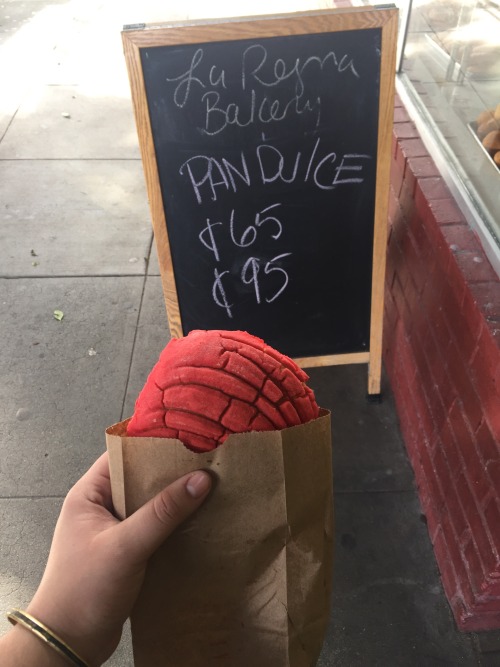 La Reyna
Bakery
PAN DUlCE
¢65
¢95